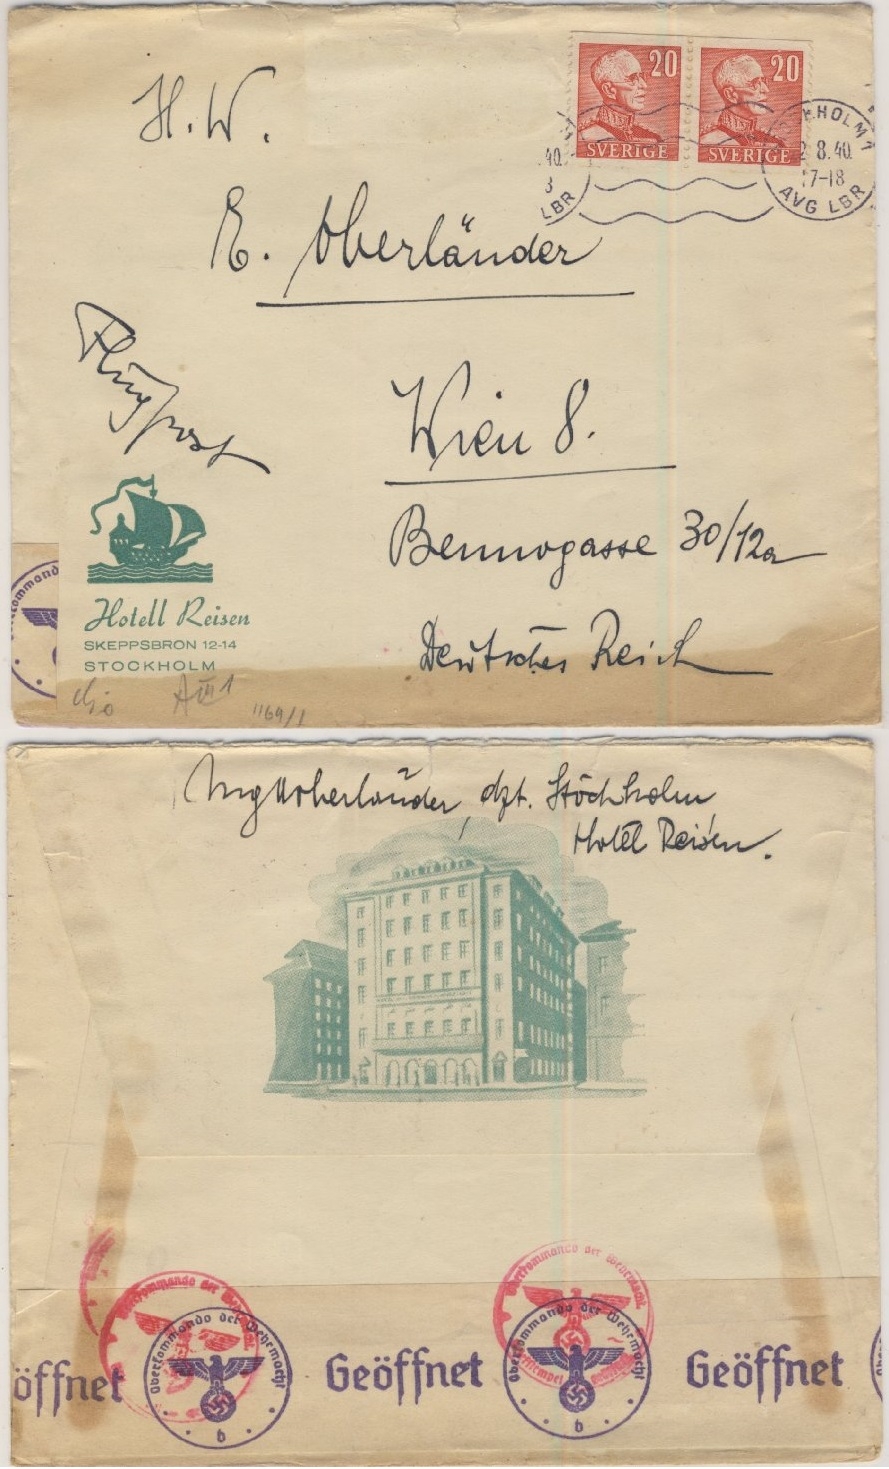 20 20
SVERIGE SVERIGE
HOLM 1
2.8.40.
17-18
AVG LBR
.40.
LBR
H. W.
E. Oberländer
Flugpost
Wien 8.
Bennogasse 30/12a
Deutsches Reich
Hotell Reisen
SKEPPSBRON 12-14
STOCKHOLM
A III 1
1169/1
Oberländer, dzt. Stockholm
Hotel Reisen.
öffnet Geöffnet Geöffnet
Oberkommando der Wehrmacht
b
Oberkommando der Wehrmacht
b
Oberkommando der Wehrmacht
Oberkommando der Wehrmacht